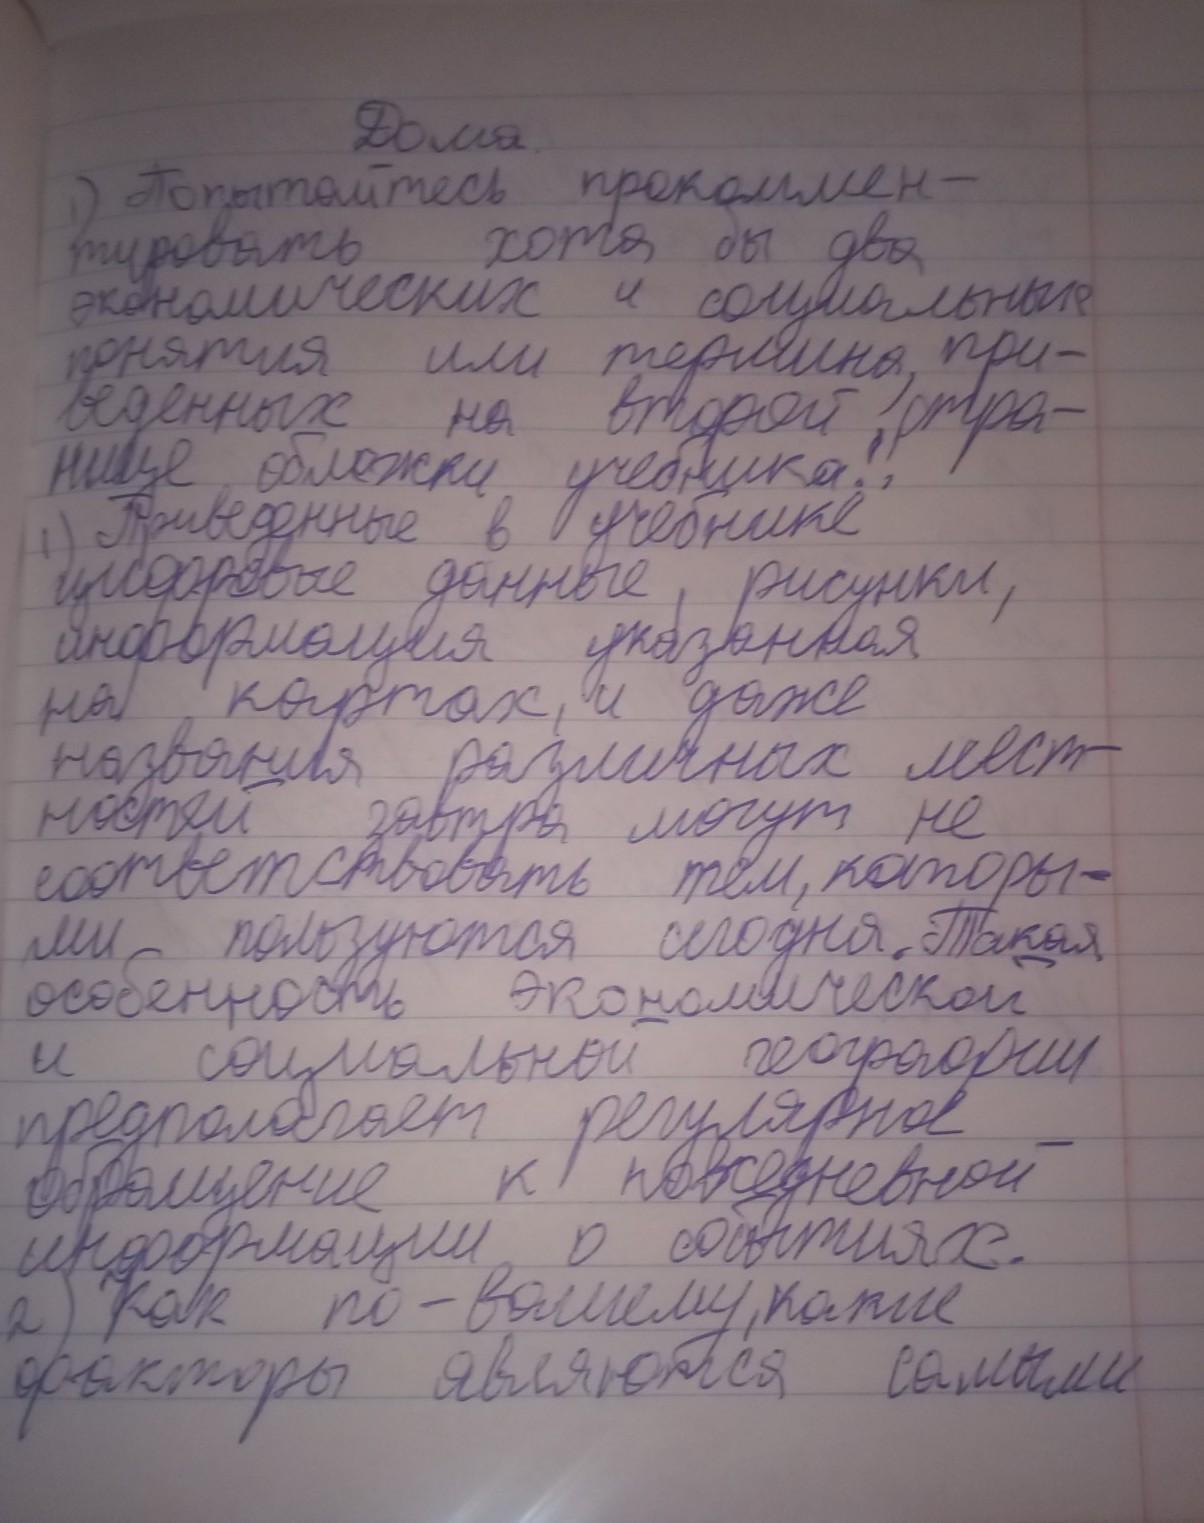 Дома.
1) Попытайтесь прокоммен-
тировать хотя бы два
экономических и социальные
понятия или термина, при-
веденных на второй стра-
нице обложки учебника.
1) Приведенные в учебнике
цифровые данные, рисунки,
информация указанная
на картах, и даже
названия различных мест-
ностей завтра могут не
соответствовать тем, которы-
ми пользуются сегодня. Такая
особенность экономической
и социальной географии
предполагает регулярное
обращение к повседневной
информации о событиях.
2) Как по-вашему, какие
факторы являются самыми